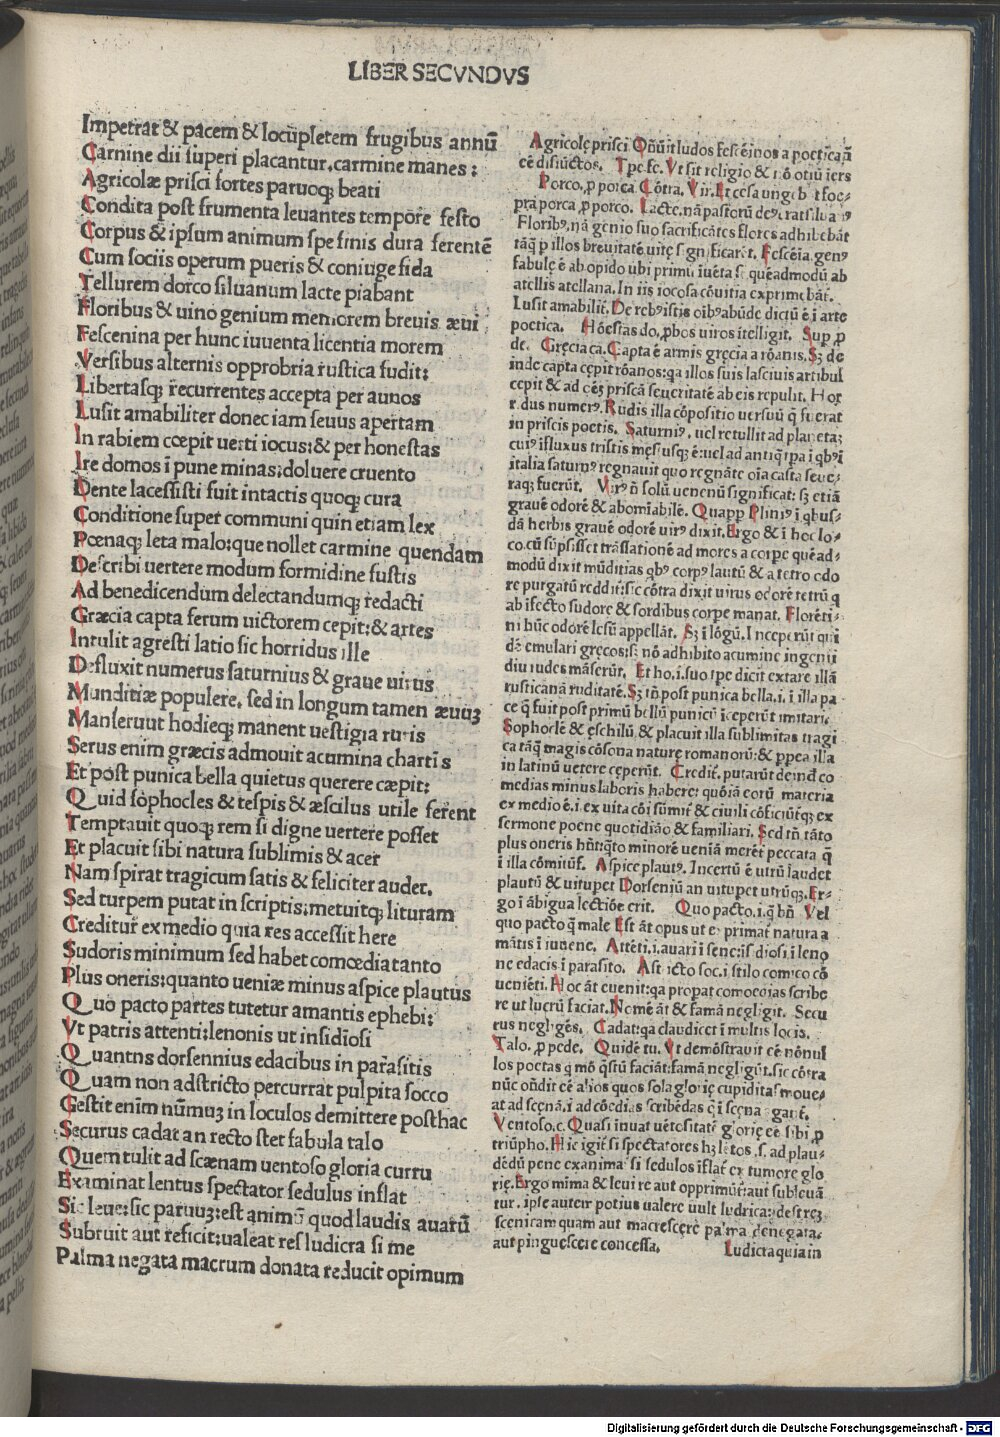 LIBER SECVNDVS
Impetrat & pacem & locupletem frugibus annū
Carnine dii superi placantur, carmine manes:
Agricolæ prisci fortes paruoqꝫ beati
Condita post frumenta leuantes tempore festo
Corpus & ipsum animum spe finis dura ferentē
Cum sociis operum pueris & coniuge fida
Tellurem dorco siluanum lacte piabant
Floribus & uino genium memorem breuis æui
Fescenina per hunc iuuenta licentia morem
Versibus alternis opprobria rustica fudit:
Libertasqꝫ recurrentes accepta per aunos
Lusit amabiliter donec iam seuus apertam
In rabiem cœpit uerti iocus: & per honestas
Ire domos īpune minas: doluere cruento
Dente lacessisti fuit intactis quoqꝫ cura
Conditione super communi quin etiam lex
Pœnaqꝫ leta malo: que nollet carmine quendam
Describi uertere modum formidine fustis
Ad benedicendum delectandumqꝫ redacti
Græcia capta ferum uictorem cepit: & artes
Intulit agresti latio sic horridus ille
Defluxit numerus saturnius & graue uirus
Munditiæ populere, sed in longum tamen æuuꝫ
Manseruut hodieqꝫ manent uestigia ruris
Serus enim græcis admouit acumina chartīs
Et post punica bella quietus querere cæpit:
Quid sophocles & tespis & æscilus utile ferent
Temptauit quoqꝫ rem si digne uertere posset
Et placuit sibi natura sublimis & acer
Nam spirat tragicum satis & feliciter audet.
Sed turpem putat in scriptis: metuitqꝫ lituram
Creditur ex medio quia res accessit here
Sudoris minimum sed habet comœdia tanto
Plus oneris: quanto ueniæ minus aspice plautus
Quo pacto partes tutetur amantis ephebi:
Vt patris attenti: lenonis ut insidiosi
Quantns dorsennius edacibus in parasitis
Quam non adstricto percurrat pulpita socco
Gestit enim nūmuꝫ in loculos demittere posthac
Securus cadat an recto stet fabula talo
Quem tulit ad scænam uentoso gloria curru
Examinat lentus spectator sedulus inflat
Sic leue: sic paruuꝫ: est animū quod laudis auarū
Subruit aut reficit: ualeat res ludicra si me
Palma negata macrum donata reducit opimum
Agricolę prisci
cē disiūctos. Vt sit religio & nō otiū
Porco, ꝓ porca Cōtra. Vir.
pra porca ꝓ porco. Lacte. nā pastorū
Floribꝰ, nā genio suo sacrificātes flores adhibebāt
tāqꝫ ꝑ illos breuitatē uitę significarēt. Fescēia genꝰ
fabulę ē ab opido ubi primū iuēta
atellis atellana. In iis iocosa cōuitia exprimebāt.
Lusit amabilit̄. De rebꝰ istis dictū ē ī arte
poetica. Hōestas do, ꝓbos uiros ītelligit. Sup ꝓ
de. Gręcia ca. Capta ē armis gręcia a rōanis. Sꝫ de
inde capta cępit rōanos: qa illos suis lasciuis artibus
cepit & ad eēs priscā seueritatē ab eis repulit. Hor
ridus numerꝰ. Rudis illa cōpositio uersuū q̄ fuerat
in priscis poetis. Saturniꝰ, uel retullit ad planetaꝫ
italia saturnꝰ regnauit quo regnāte oīa casta seue
raqꝫ fuerūt. Virꝰ n̄ solū uenenū significat: sꝫ etiā
grauē odorē & abomīabilē. Quapp Pliniꝰ ī qbus-
dā herbis grauē odorē uirꝰ dixit. Ergo & ī hoc lo-
co cū sūpsisset trāslationē ad mores a corpe quēad-
modū dixit mūditias qbꝰ corpꝰ lautū & a tetro odo
re purgatū reddit: sic cōtra dixit uirus odorē tetrū q
ab īfecto sudore & sordibus corpe manat. Florēti-
ni hūc odorē lesū appellāt. Sꝫ ī lōgū. Inceperūt qui
dē emulari gręcos: sꝫ nō adhibito acumine ingenii
diu rudes māserūt. Et ho. i. suo tpe dicit extare illā
rusticanā ruditatē. Sꝫ tn̄ post punica bella. i. ī illa pa
ce q̄ fuit post primū bellū punicū īceperūt imitari
Sophoclē & eschilū & placuit illa sublimitas tragi
ca tāqꝫ magis cōsona naturę romanorū: & ꝓpea illa
in latinū uetere cęperūt. Credit̄. putarūt deind co
medias minus laboris habere: quōiā eorū materia
ex medio ē. i. ex uita cōi sūmit̄ & ciuili cōficiūtqꝫ ex
sermone poene quotidiāo & familiari. Sed tn̄ tāto
plus oneris hn̄t qto minorē ueniā meret̄ peccata q̄
ī illa cōmitūt̄. Aspice plautꝰ. Incertū ē utrū laudet
plautū & uitupet Dorseniū an uitupet utrūqꝫ. Er-
go ī ābigua lectiōe erit. Quo pacto. i. q̄ bn̄ Vel
quo pacto q̄ male Est āt opus ut exprimat natura a
mātis ī iuuene. Attēti. i. auari ī sene: isidiosi ī leno
ne edacis ī parasito. Astricto soc. i. stilo comico cō
ueniēti. Hoc āt euenit: qa propat comoedias scribe
re ut lucrū faciat. Nomē āt & famā negligit. Secu
rus negligēs. Cadat: qa claudicet ī multis locis.
Talo. ꝓ pede. Quidē tu. Vt demōstrauit eē nōnul
los poetas q̄ mō qstū faciāt: famā negligūt. sic cōtra
nūc on̄dit eē alios quos sola glorię cupiditas moue-
at ad scęnā. i. ad cōedias scribēdas q̄ ī scęna agant̄.
Ventoso. c. Quasi inuat uētositatē glorię eē sibi ꝓ
triūpho. Hic igit̄ si spectatores hꝫ lētos. s. ad plau-
dēdū pene exanimat̄ si sedulos īflat̄ ex tumore glo
rię. Ergo mima & leui re aut opprimūt̄ aut subleuā
tur. ipse autem potius ualere uult ludricaꝫ destreꝫ
scenicam quam aut macrescere palma denegata.
aut pinguescere concessa. Ludicra quia in
Digitalisierung gefördert durch die Deutsche Forschungsgemeinschaft - DFG